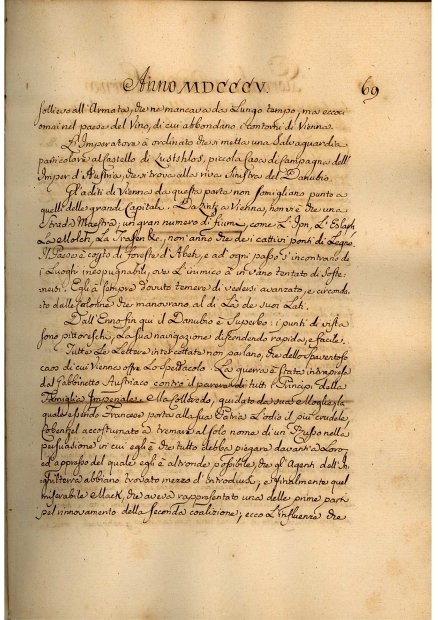 Anno MDCCCV.
69
sollievo all'Armata, che ne mancava da Lungo tempo, ma eccoci
omai nel paese del Vino, di cui abbondano i contorni di Vienna.
L'Imperatore à ordinato che si metta una Salvaguardia
particolare al Castello di Lustshlos, piccola Casa di Campagna dell'
Imper d'Austria, che si trova alla riva Sinistra del Danubio.
Gl'aditi di Vienna da questa parte non somigliano punto a
quelli delle grandi Capitale. Da Lintz a Vienna, non vi è che una
strada Maestra; un gran numero di fiumi, come L'Ipn, L'
La Molck, La Trasen &c, non anno che dei cattivi ponti di Legno.
Il Paese è coperto di foreste d'Abeti, e ad ogni passo s'incontrano dei
i Luoghi inespugnabili, ove L'inimico à in vano tentato di soste-
nersi. Egli à sempre dovuto temere di vedersi avanzato, e circonda-
to dalle Colonne che manovrano al di Là de suoi Lati.
Dall'Enns fin qui il Danubio è Superbo: i punti di vista
sono pittoreschi, La sua navigazione discendendo rapida, e facile.
Tutte Le Lettere intercettate non parlano, che dello spaventoso
caos di cui Vienna offre Lo spettacolo. La guerra è stata intrapresa
dal Gabbinetto Austriaco contro il parere di tutti i Principi della
Famiglia Imperiale. Ma Colloredo, guidato da sua Moglie, la
quale essendo Francese porta alla sua Patria L'odio il più crudele
Cobenzel accostumato a tremare al solo nome di un Russo nella
persuasione in cui egli è che tutto debba piegare davanti a Loro,
ed appresso del quale egli è altronde possibile, che gl'Agenti dell'In-
ghilterra abbiano trovato mezzo d'Introdursi; e finalmente quel
miserabile Mack, che aveva rappresentato una delle prime parti
pel rinnovamento della seconda coalizione; ecco L'influenze che